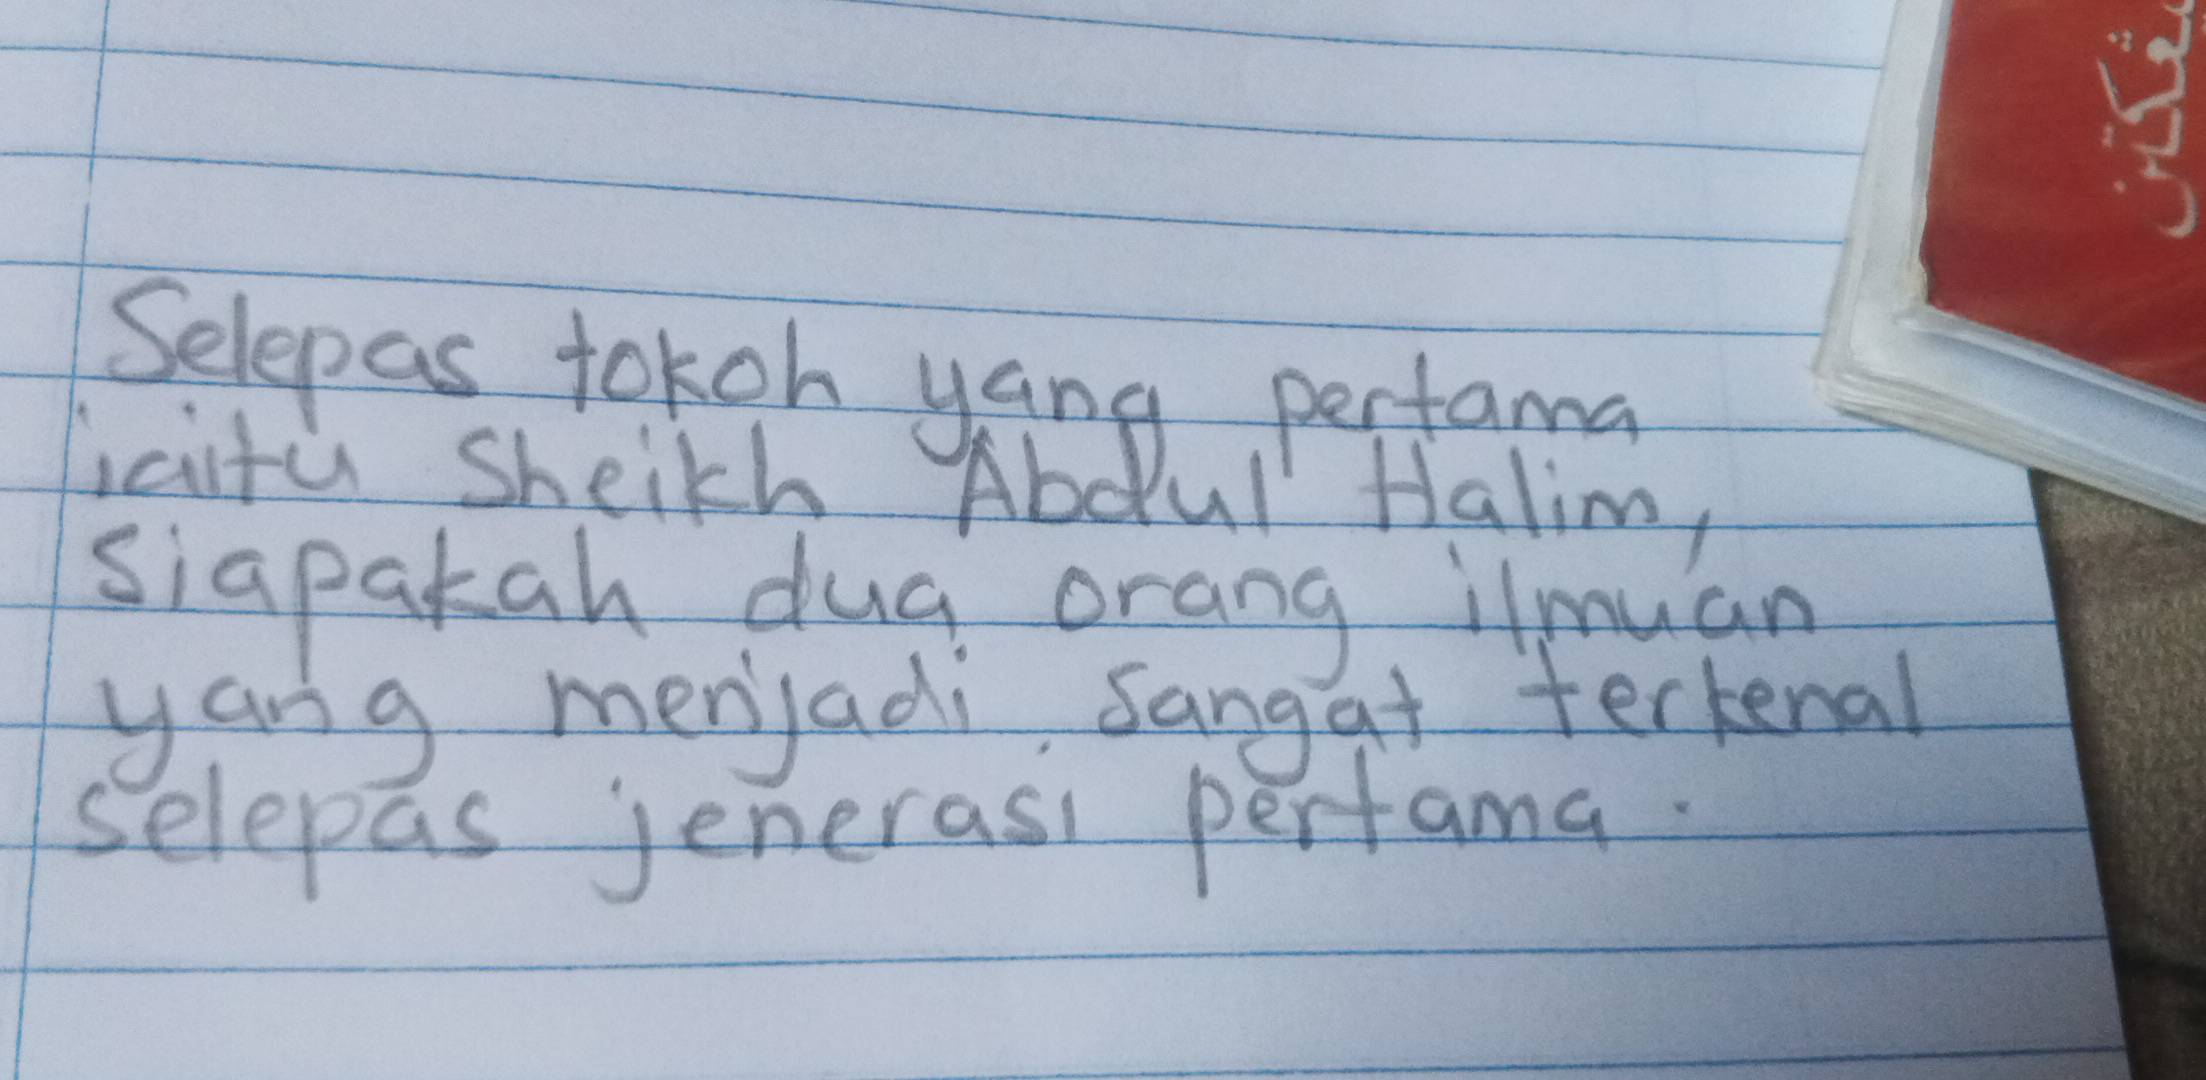 Selepas tokoh yang pertama
iaitu Sheikh Abdul Halim,
siapakah dua orang ilmuan
yang menjadi sangat terkenal
selepas jenerasi pertama.